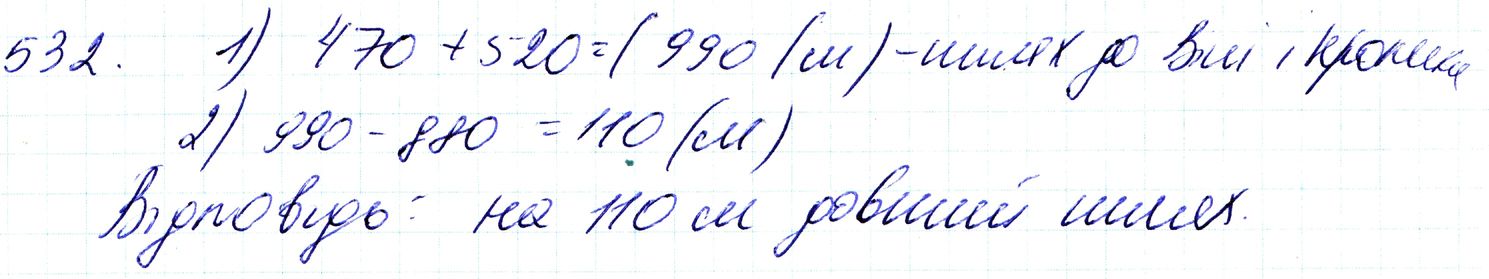 532. 1) 470 + 520 = ( 990 (м) - шлях до Вні і Кролика
2) 990 - 880 = 110 (м)
Відповідь: на 110 м довший шлях.